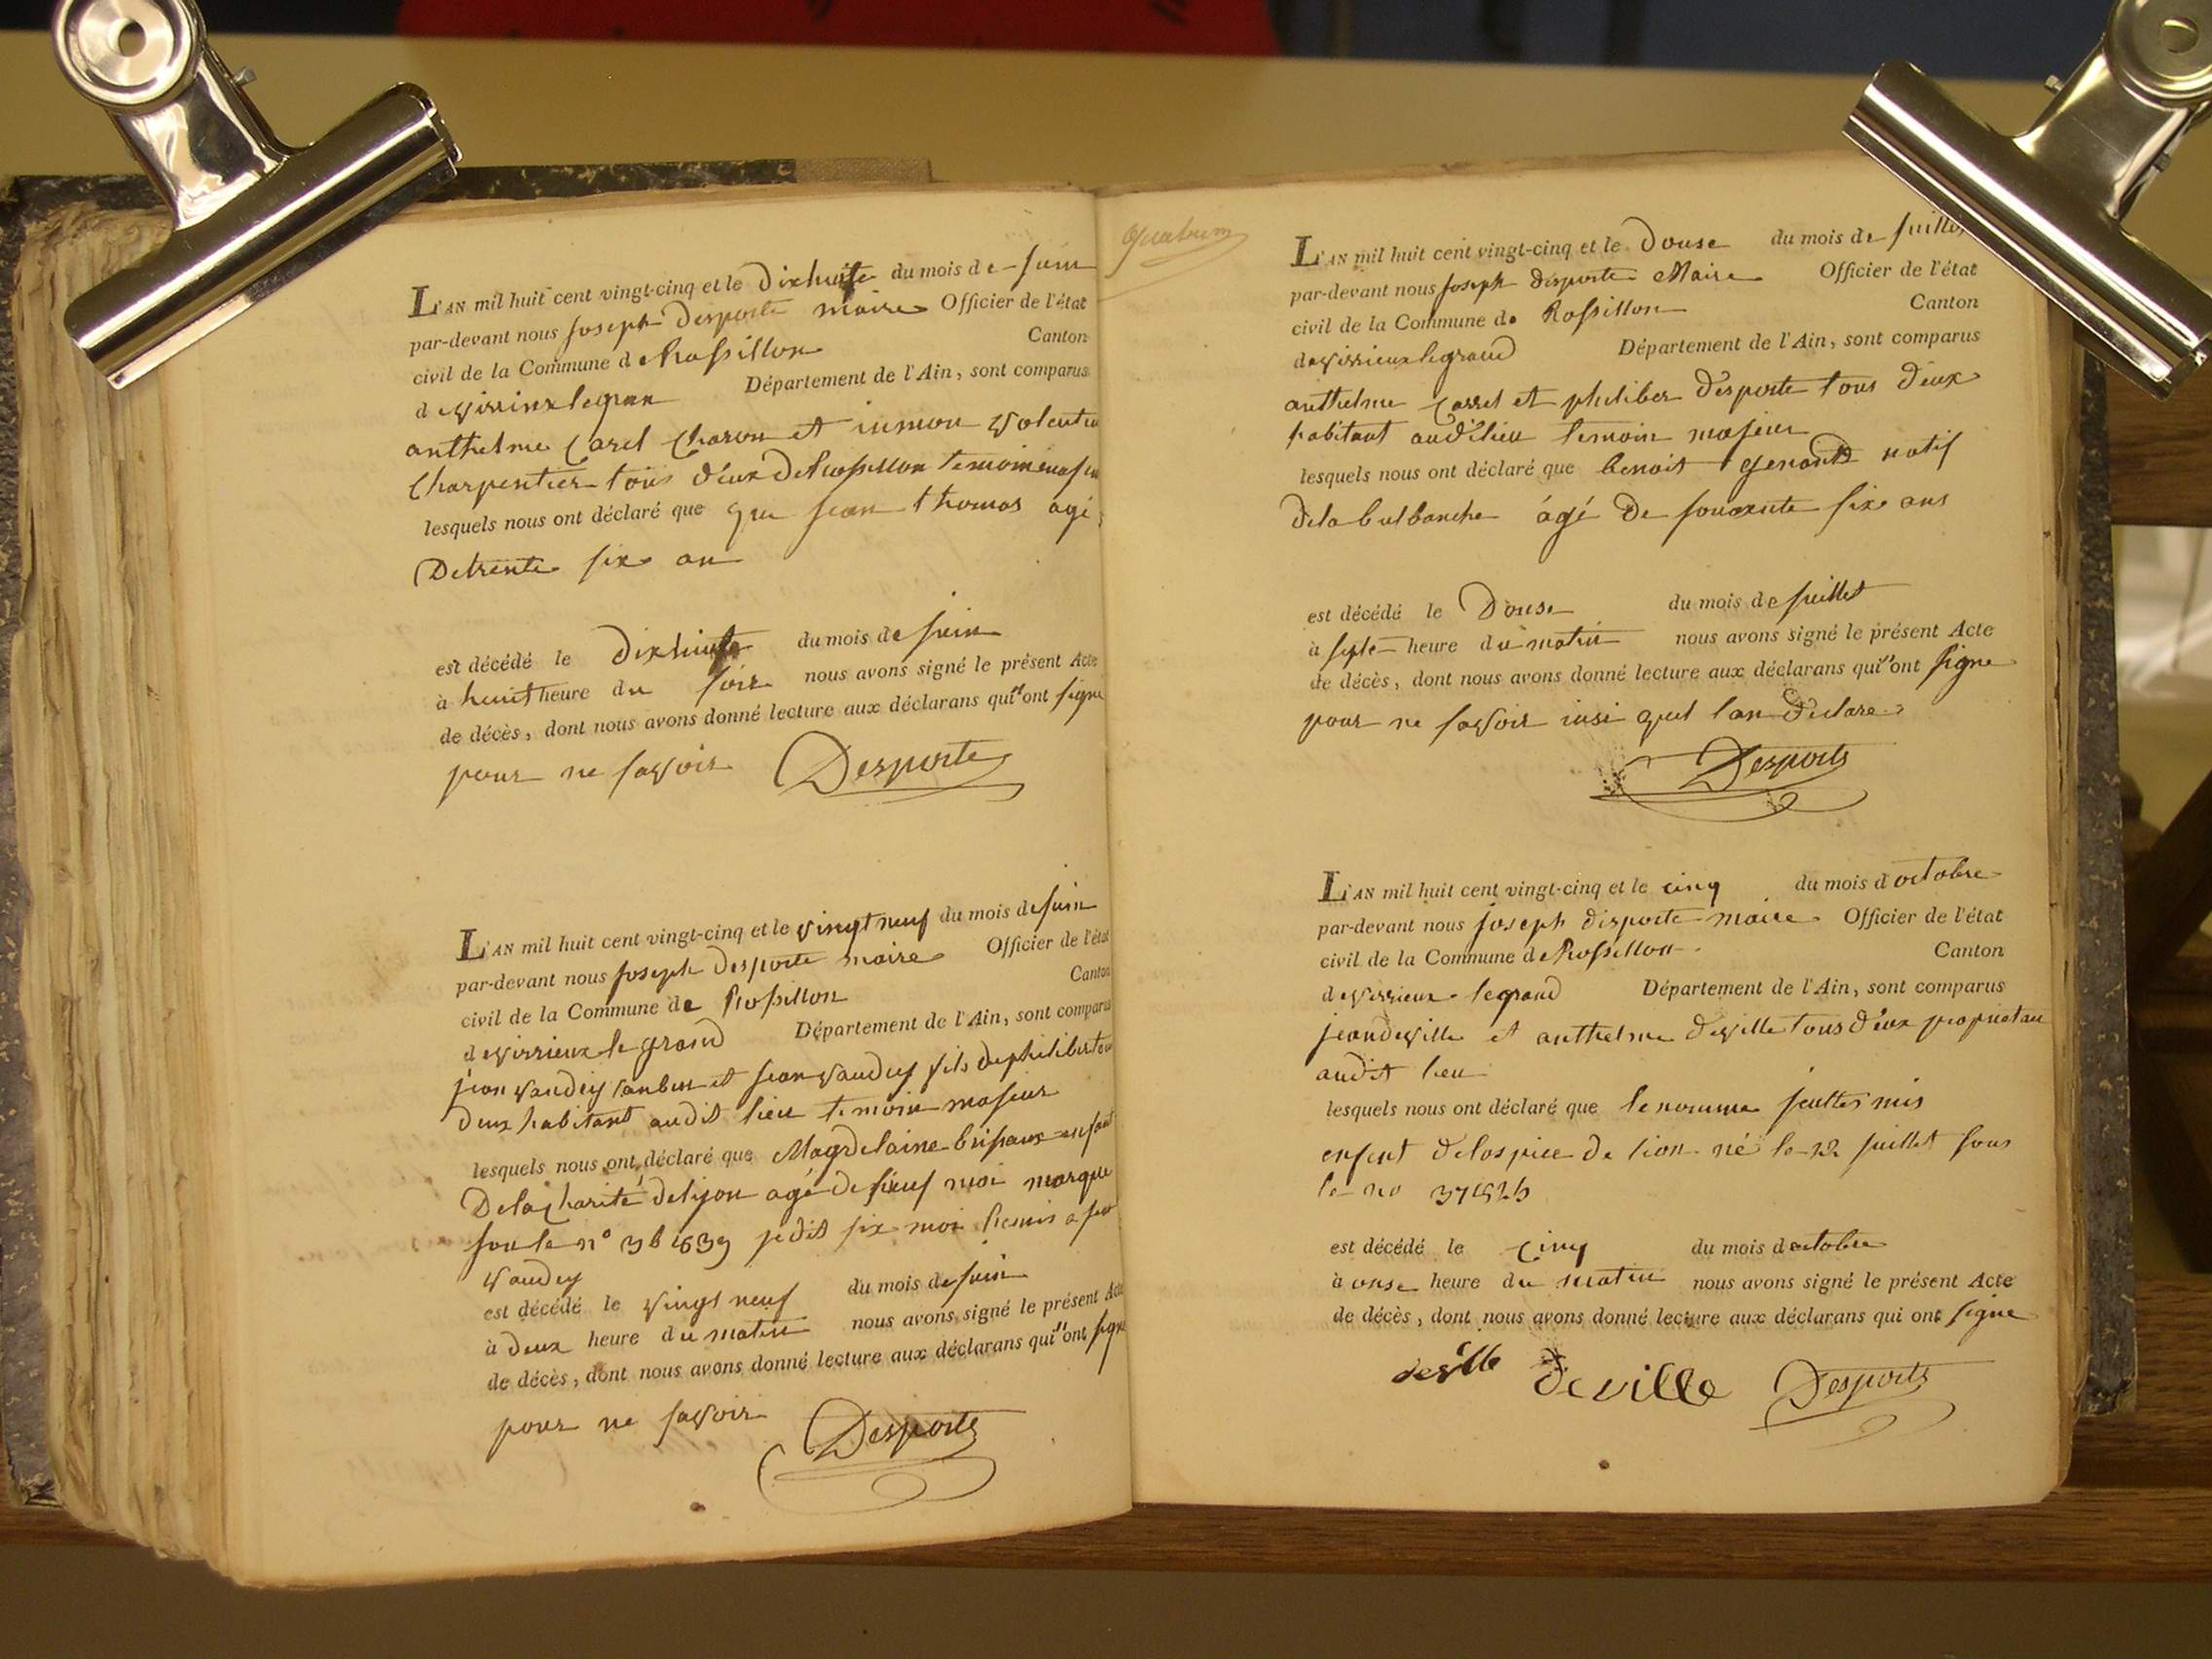 L'AN mil huit cent vingt-cinq et le dixhuite du mois de juin
par-devant nous joseph Desporte maire Officier de l'état
civil de la Commune de Rossillon Canton
de virrieux legran Département de l'Ain, sont comparus
anthelme Carel Charon et
Charpentier tous deux de Rossillon temoin
lesquels nous ont déclaré que que jean thomas agé
De trente six an
est décédé le dixhuite du mois de juin
à heuit heure du soir nous avons signé le présent Acte
de décès, dont nous avons donné lecture aux déclarans qui n'ont signe
pour ne savoir Desporte
L'AN mil huit cent vingt-cinq et le vingt neuf du mois de juin
par-devant nous joseph Desporte maire Officier de l'état
civil de la Commune de Rossillon Canton
de virrieux le grand Département de l'Ain, sont comparus
jean vaudey et jean vaudey fils de philibert
deux habitant audit lieu temoin majeur
lesquels nous ont déclaré que Magdelaine enfant
De la charité de lyon agé de moi marque
sou le n° je dit six moi
vaudey
est décédé le vingt neuf du mois de juin
à deux heure du matin nous avons signé le présent Acte
de décès, dont nous avons donné lecture aux déclarans qui n'ont signe
pour ne savoir Desporte
L'AN mil huit cent vingt-cinq et le Douse du mois de juillet
par-devant nous joseph desporte Maire Officier de l'état
civil de la Commune de Rossillon Canton
de virrieux legrand Département de l'Ain, sont comparus
anthelme Carrel et philiber desporte tous deux
habitant audilieu temoin majeur
lesquels nous ont déclaré que benoit natif
dela agé de soixante six ans
est décédé le Douse du mois de juillet
à sept heure du matin nous avons signé le présent Acte
de décès, dont nous avons donné lecture aux déclarans qui n'ont signe
pour ne savoir insi quil lan declare
Desporte
L'AN mil huit cent vingt-cinq et le cinq du mois d octobre
par-devant nous joseph disporte maire Officier de l'état
civil de la Commune de Rossillon Canton
de virrieux legrand Département de l'Ain, sont comparus
jean deville et anthelme deville tous deux proprietaire
audit lieu
lesquels nous ont déclaré que le nomme
enfent delospice de lion né le 12 juillet sous
le no
est décédé le cinq du mois d octobre
à onse heure du matin nous avons signé le présent Acte
de décès, dont nous avons donné lecture aux déclarans qui ont signe
deville deville Desporte